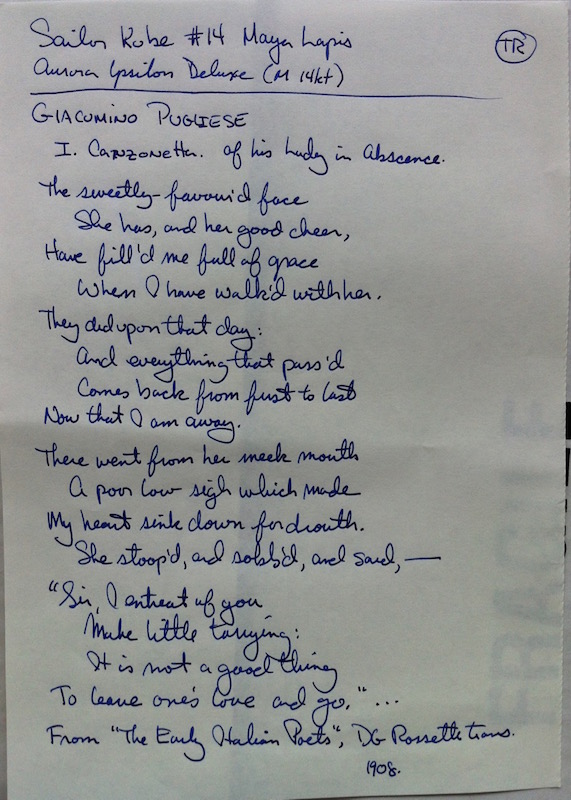 Sailor Kobe #14 Maya Lapis
TR
Aurora Ipsilon Deluxe (M 14kt)
GIACOMINO PUGLIESE
I. Canzonetta. Of his Lady in Abscence.
The sweetly-favour'd face
She has, and her good cheer,
Have fill'd me full of grace
When I have walk'd with her.
They did upon that day:
And everything that pass'd
Comes back from first to last
Now that I am away.
There went from her meek mouth
A poor low sigh which made
My heart sink down for drouth.
She stoop'd, and sobb'd, and said,—
"Sir, I entreat of you
Make little tarrying:
It is not a good thing
To leave one's love and go." ...
From "The Early Italian Poets", DG Rossetti trans.
1908.